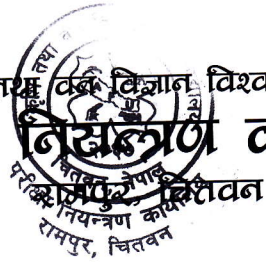 तथा वन विज्ञान विश्व
नियन्त्रण का
रामपुर, चितवन
कृषि तथा व
चितवन, नेपाल
परीक्षा नियन्त्रण कार्या
रामपुर, चितवन